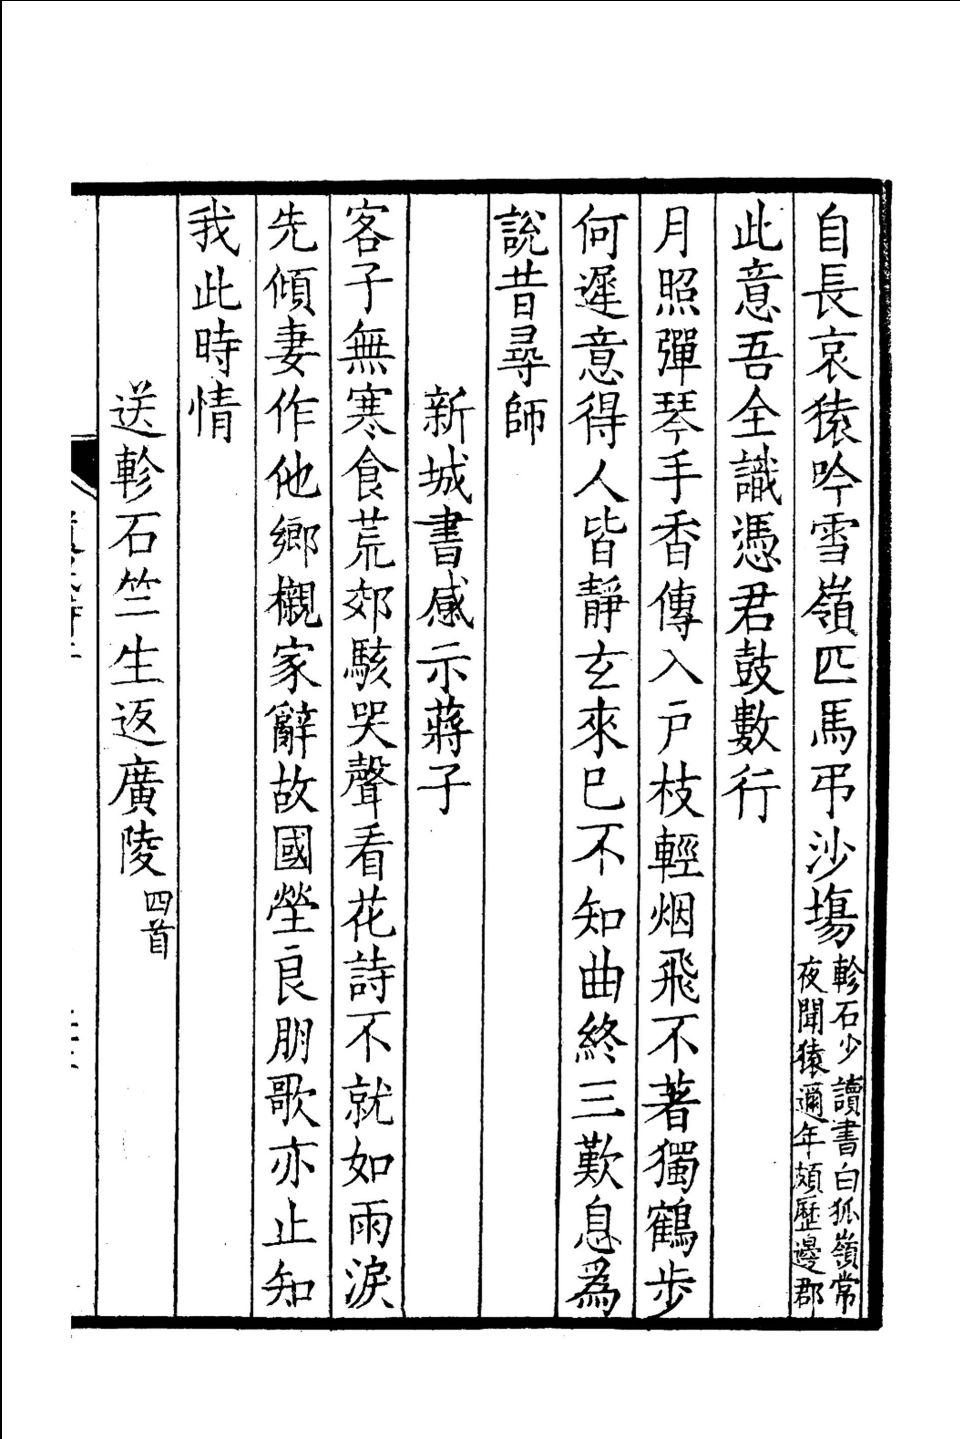 自長哀猿吟雪嶺匹馬弔沙塲軫石少讀書白狐嶺常
夜聞猿邇年頗歷邊郡
此意吾全識憑君鼓數行
月照彈琴手香傳入戶枝輕烟飛不著獨鶴步
何遲意得人皆靜玄來已不知曲終三歎息為
說昔尋師
新城書感示蔣子
客子無寒食荒郊駭哭聲看花詩不就如雨淚
先傾妻作他鄉櫬家辭故國塋良朋歌亦止知
我此時情
送軫石竺生返廣陵四首